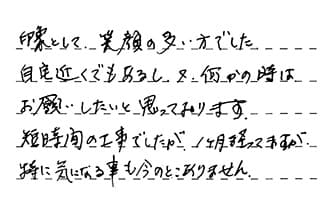 印象として、笑顔の多い方でした
自宅近くでもあるし、又、何かの時は
お願いしたいと思っております。
短時間の工事でしたが、1ヶ月経ってますが、
特に気になる事も今のところありません。